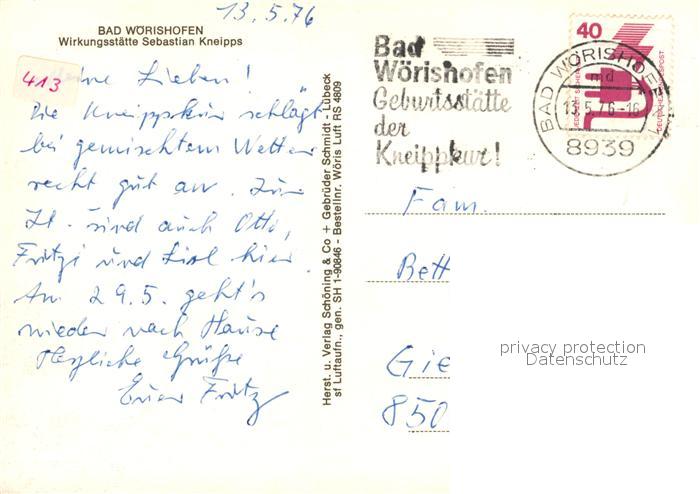 13.5.76
BAD WÖRISHOFEN
Wirkungsstätte Sebastian Kneipps
413
Lieben!
Die Kneippkur schlägt
bei gemischtem Wetter
recht gut an. Zur
Zt. sind auch Otti,
Fritzi und Lisl hier.
Am 29.5. geht's
wieder nach Hause
Herzliche Grüße
Euer Fritz
Herst. u. Verlag Schöning & Co + Gebrüder Schmidt - Lübeck
sf Luftaufn., gen. SH 1-90846 - Bestellnr. Wöris Luft RS 4809
Bad
Wörishofen
Geburtsstätte
der
Kneippkur!
40
DEUTSCHE BUNDESPOST
BAD WÖRISHOFEN
md
13.5.76-16
8939
Fam.
Bett
Gie
850
privacy protection
Datenschutz